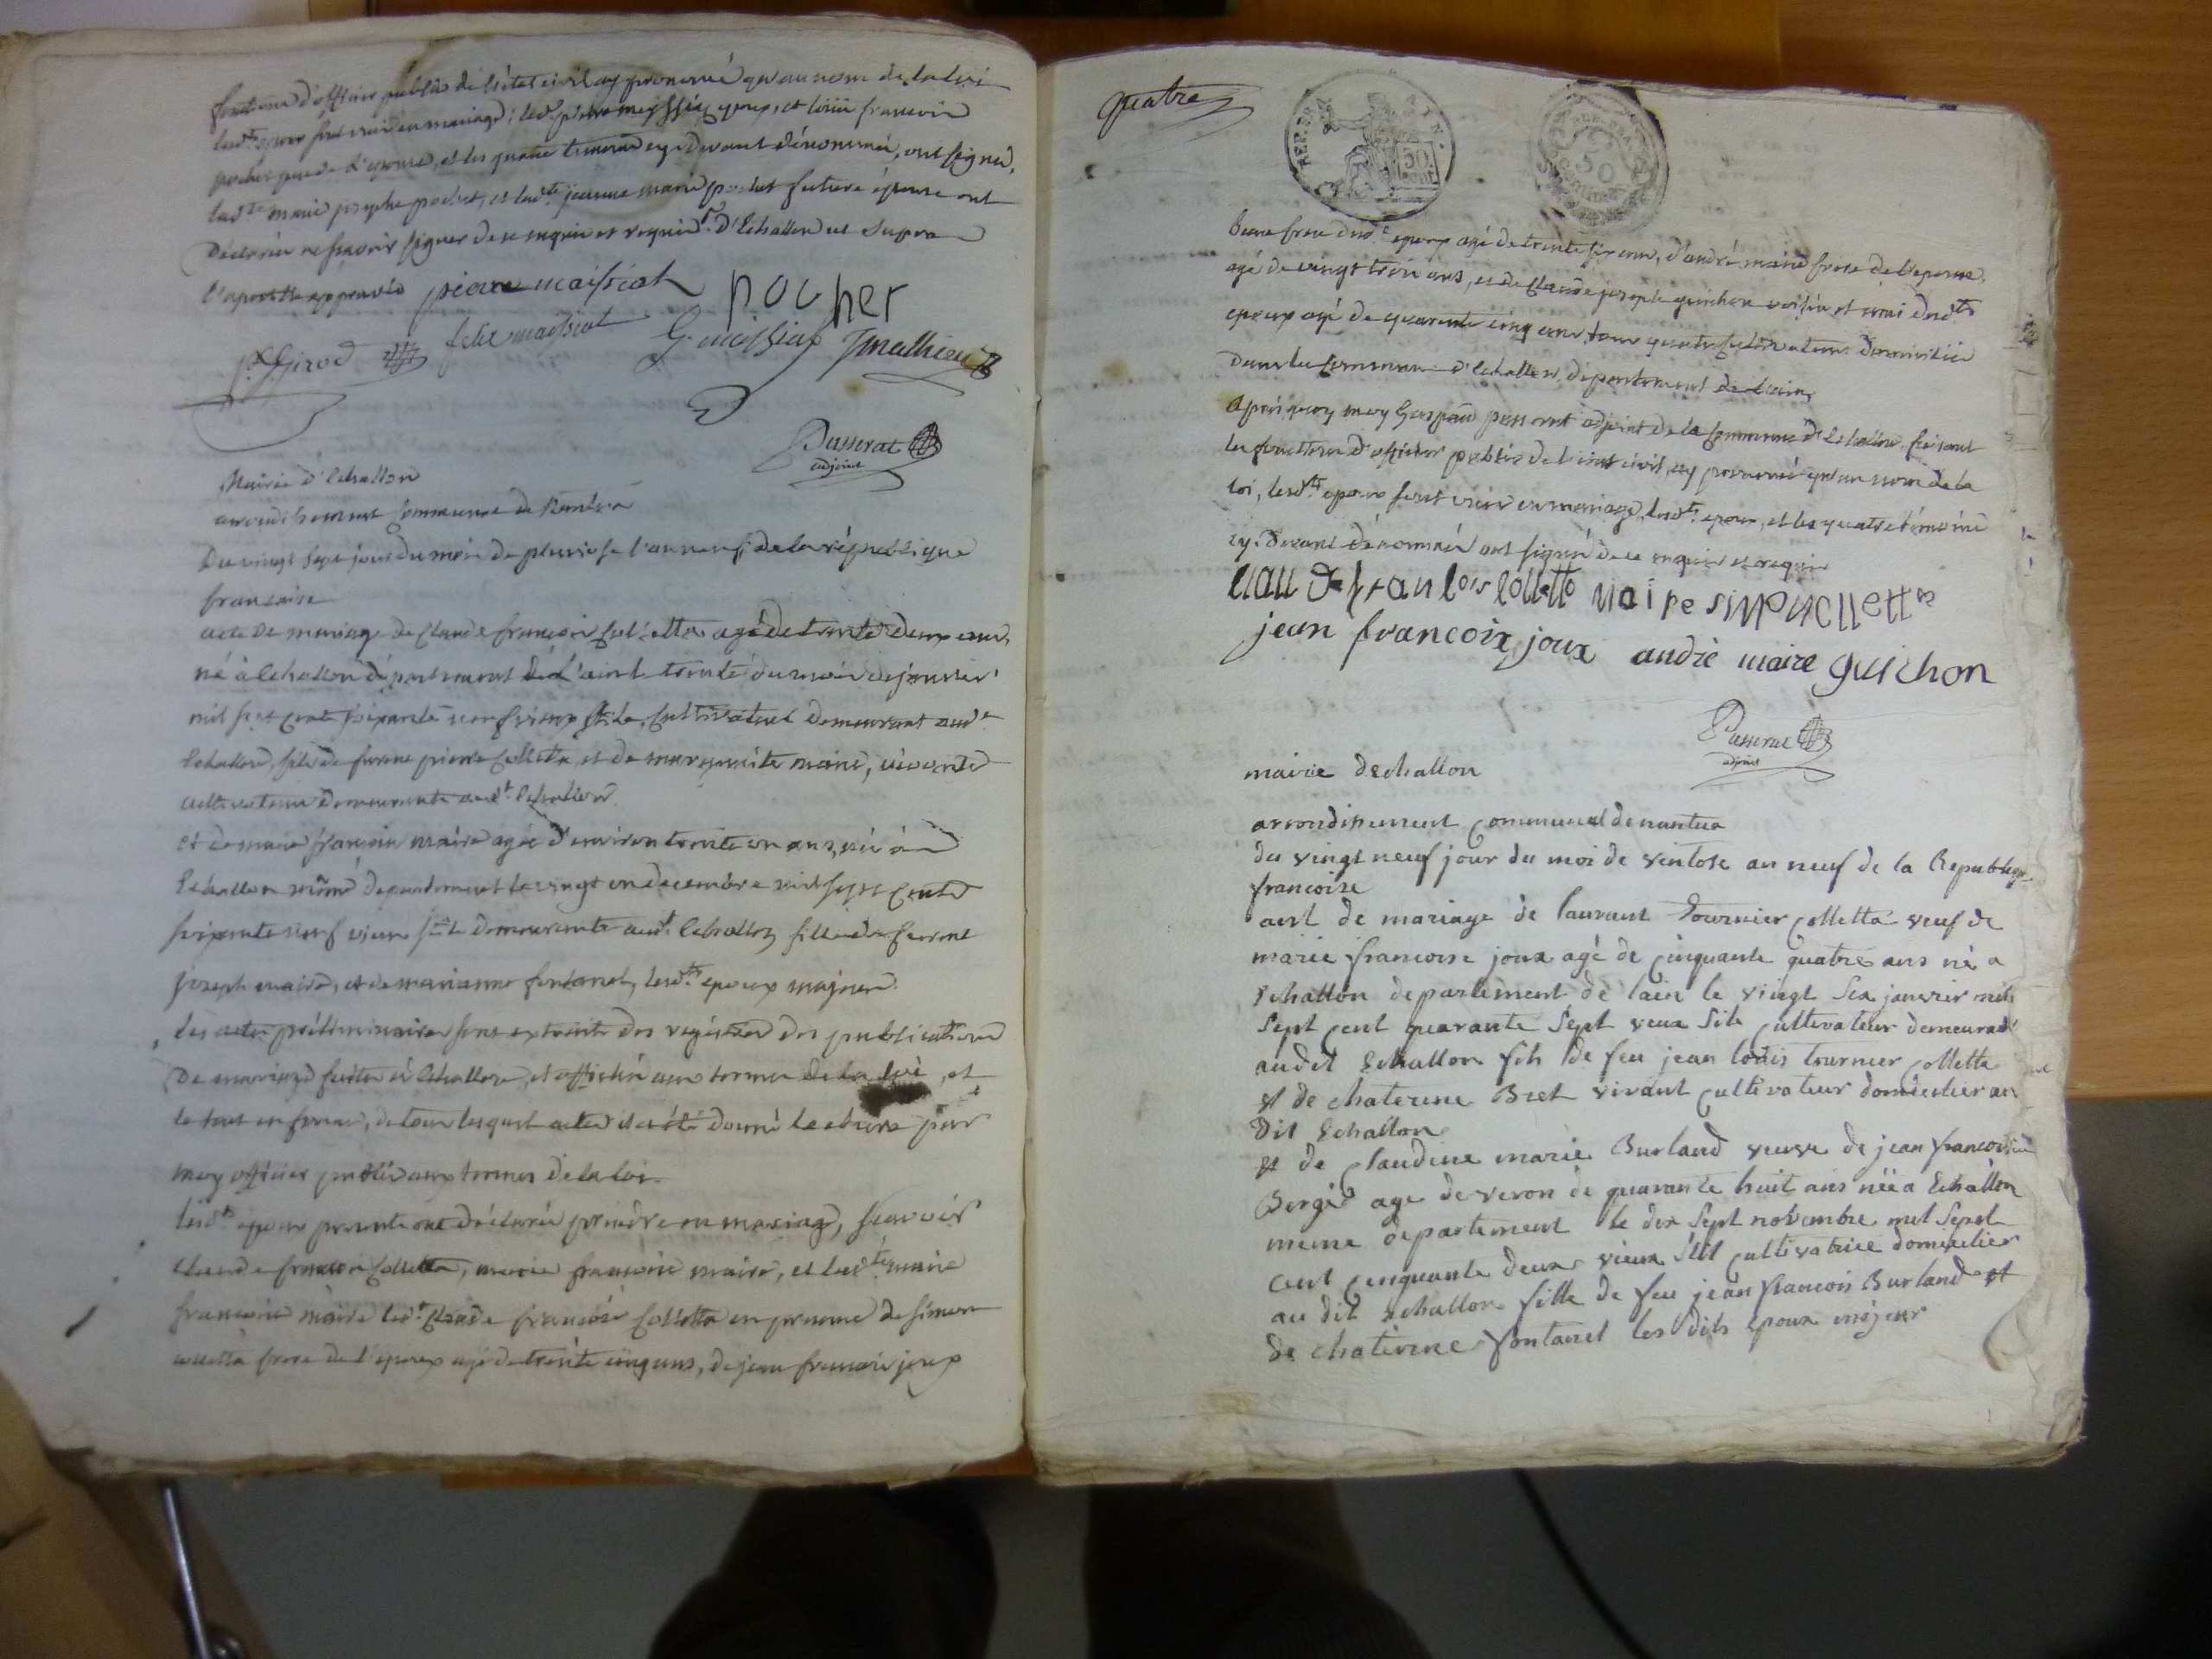 fonctions d'officier public de l'état civil ay prononcé qu'au nom de la loi
lesdts epoux sont unis en mariage; led. pierre epoux, et francois
pochet pere de l'epouse, et les quatre temoins cy devant dénommés, ont signés,
ladte marie josephe pochet, et ladte jeanne marie pochet future épouse ont
déclarées ne scavoir signer de ce enquis et requis. d'Echallon ut supra
l'apostille approuvée pierre maissiat
pocher
felix maissiat G. maissiat Jmathieu
Girod
Passerat
adjoint
Mairie d'Echallon
arrondissement Communal de Nantua
Du vingt sept jour du mois de pluviose l'an neuf de la république
francaise
acte de mariage de Claude francois Colletta agé de trente deux ans,
né à Echallon département de L'ain le trente du mois de janvier
mil sept cent soixante neuf vieux stile, Cultivateur demeurant audt
Echallon, fils de pierre Colletta, et de marguerite maire, vivante
cultivateurs demeurante audt Echallon
et de marie francoise maire agée d'environ trente un ans, née à
Echallon même departement le vingt un decembre mil sept cents
soixante neuf vieux stile demeurante audt Echallon fille de
joseph maire, et de marianne fontanet, lesdts epoux majeurs.
les actes préliminaires sont extraits des registres des publications
de mariage faites à Echallon, et affichés aux termes de la loi, et
le tout en forme, de tous lesquels actes il a été donné lecture par
moy officier public aux termes de la loi.
lesdts epoux presents ont déclarés prendre en mariage, scavoir
Claude francois Colletta, marie francoise maire, et ladte marie
francoise maire ledt Claude francois Colletta en presence de simon
colletta frere de l'epoux agé de trente cinq ans, de jean francois joux
quatre
REP. FRA. 50 CENT.
50
beau frere dudt epoux agé de trente six ans, d'andré maire frere de l'epouse,
agé de vingt trois ans, et de Claude joseph guichon voisin et ami desdts
epoux agé de quarante cinq ans, tous quatre cultivateurs domiciliés
dans la commune d'Echallon, département de l'ain,
Après quoy moy Gaspard passerat adjoint de la Commune d'Echallon, faisant
les fonctions d'officier public de l'état civil, ay prononcé qu'au nom de la
loi, lesdts epoux sont unis en mariage, lesdts epoux, et les quatre témoins
cy-devant dénommés ont signés de ce enquis et requis
maire
jean francoix joux andré maire guichon
Passerat
adjoint
mairie dechallon
arrondissement communal de nantua
du vingt neuf jour du moi de ventose an neuf de la Republiqe
francoise
act de mariage de laurant Tournier Colletta veuf de
marie francoise joux agé de cinquante quatre ans né a
Echallon departement de lain le vingt six janvier mil
sept cent quarante sept vieux stile cultivateur demeurant
audit Echallon fils de feu jean louis tournier Colletta
et de chaterine Bret vivant cultivateur domicilier au
dit Echallon
et de Claudine marie Burland veuve de jean francois
Bergé age de veron de quarante huit ans née a Echallon
meme departement le dix sept novembre mil sept
cent cinquante deux vieux stil cultivatrice domicilier
au dit Echallon fille de feu jean francois Burland et
de chaterine fontanet les dits epoux mojeur